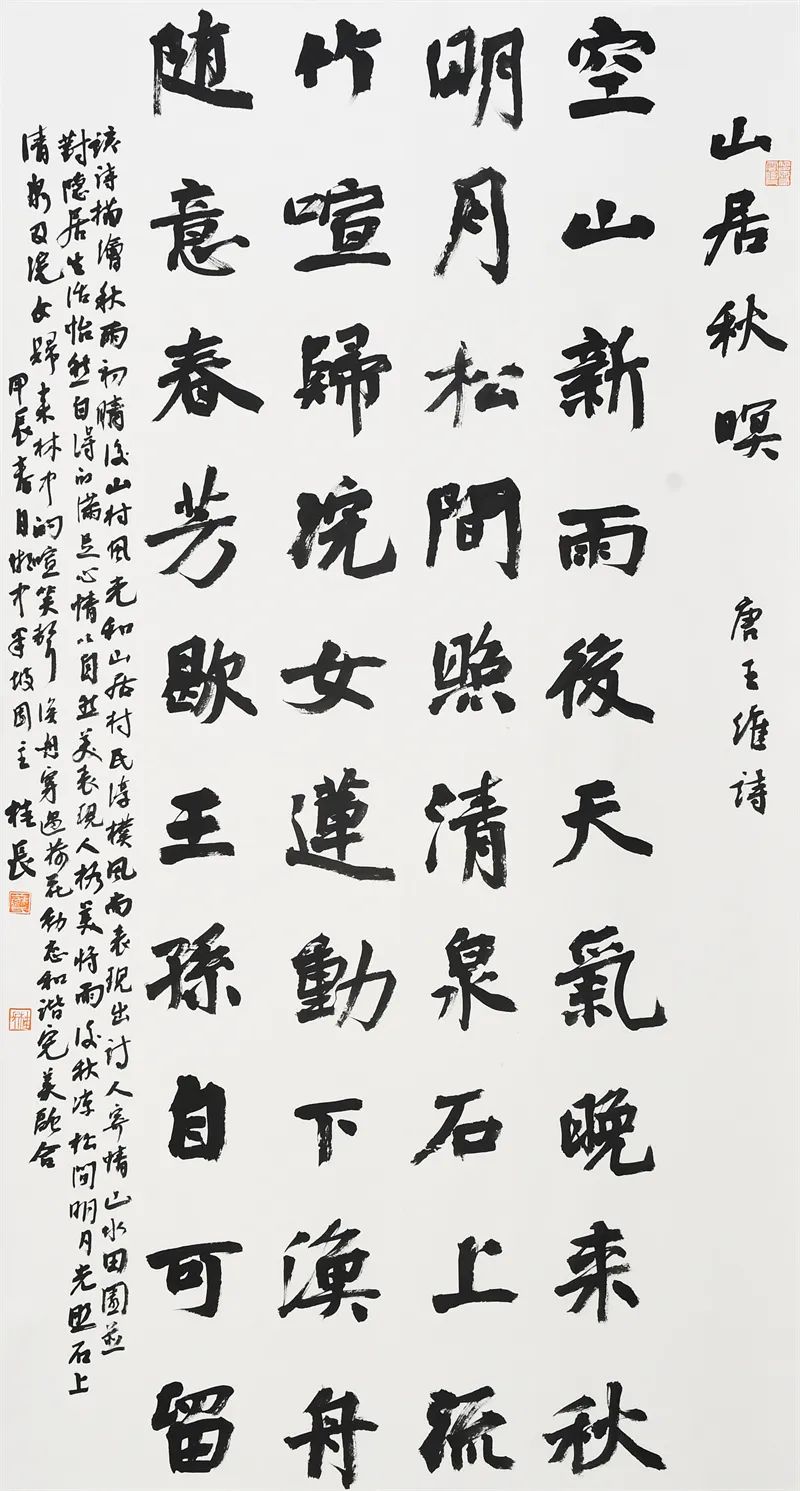 山居秋暝
唐王維詩
空山新雨後天氣晚来秋
明月松間照清泉石上流
竹喧歸浣女蓮動下漁舟
随意春芳歇王孫自可留
該詩描繪秋雨初晴後山村风光和山居村民淳樸风尚表現出詩人寄情山水田園並
對隐居生活怡然自得的滿足心情以自然美表現人格美將雨後秋凉松間明月光照石上
清泉及浣女歸来林中的喧笑聲漁舟穿過荷花動态和諧完美融合
甲辰春月 桂長